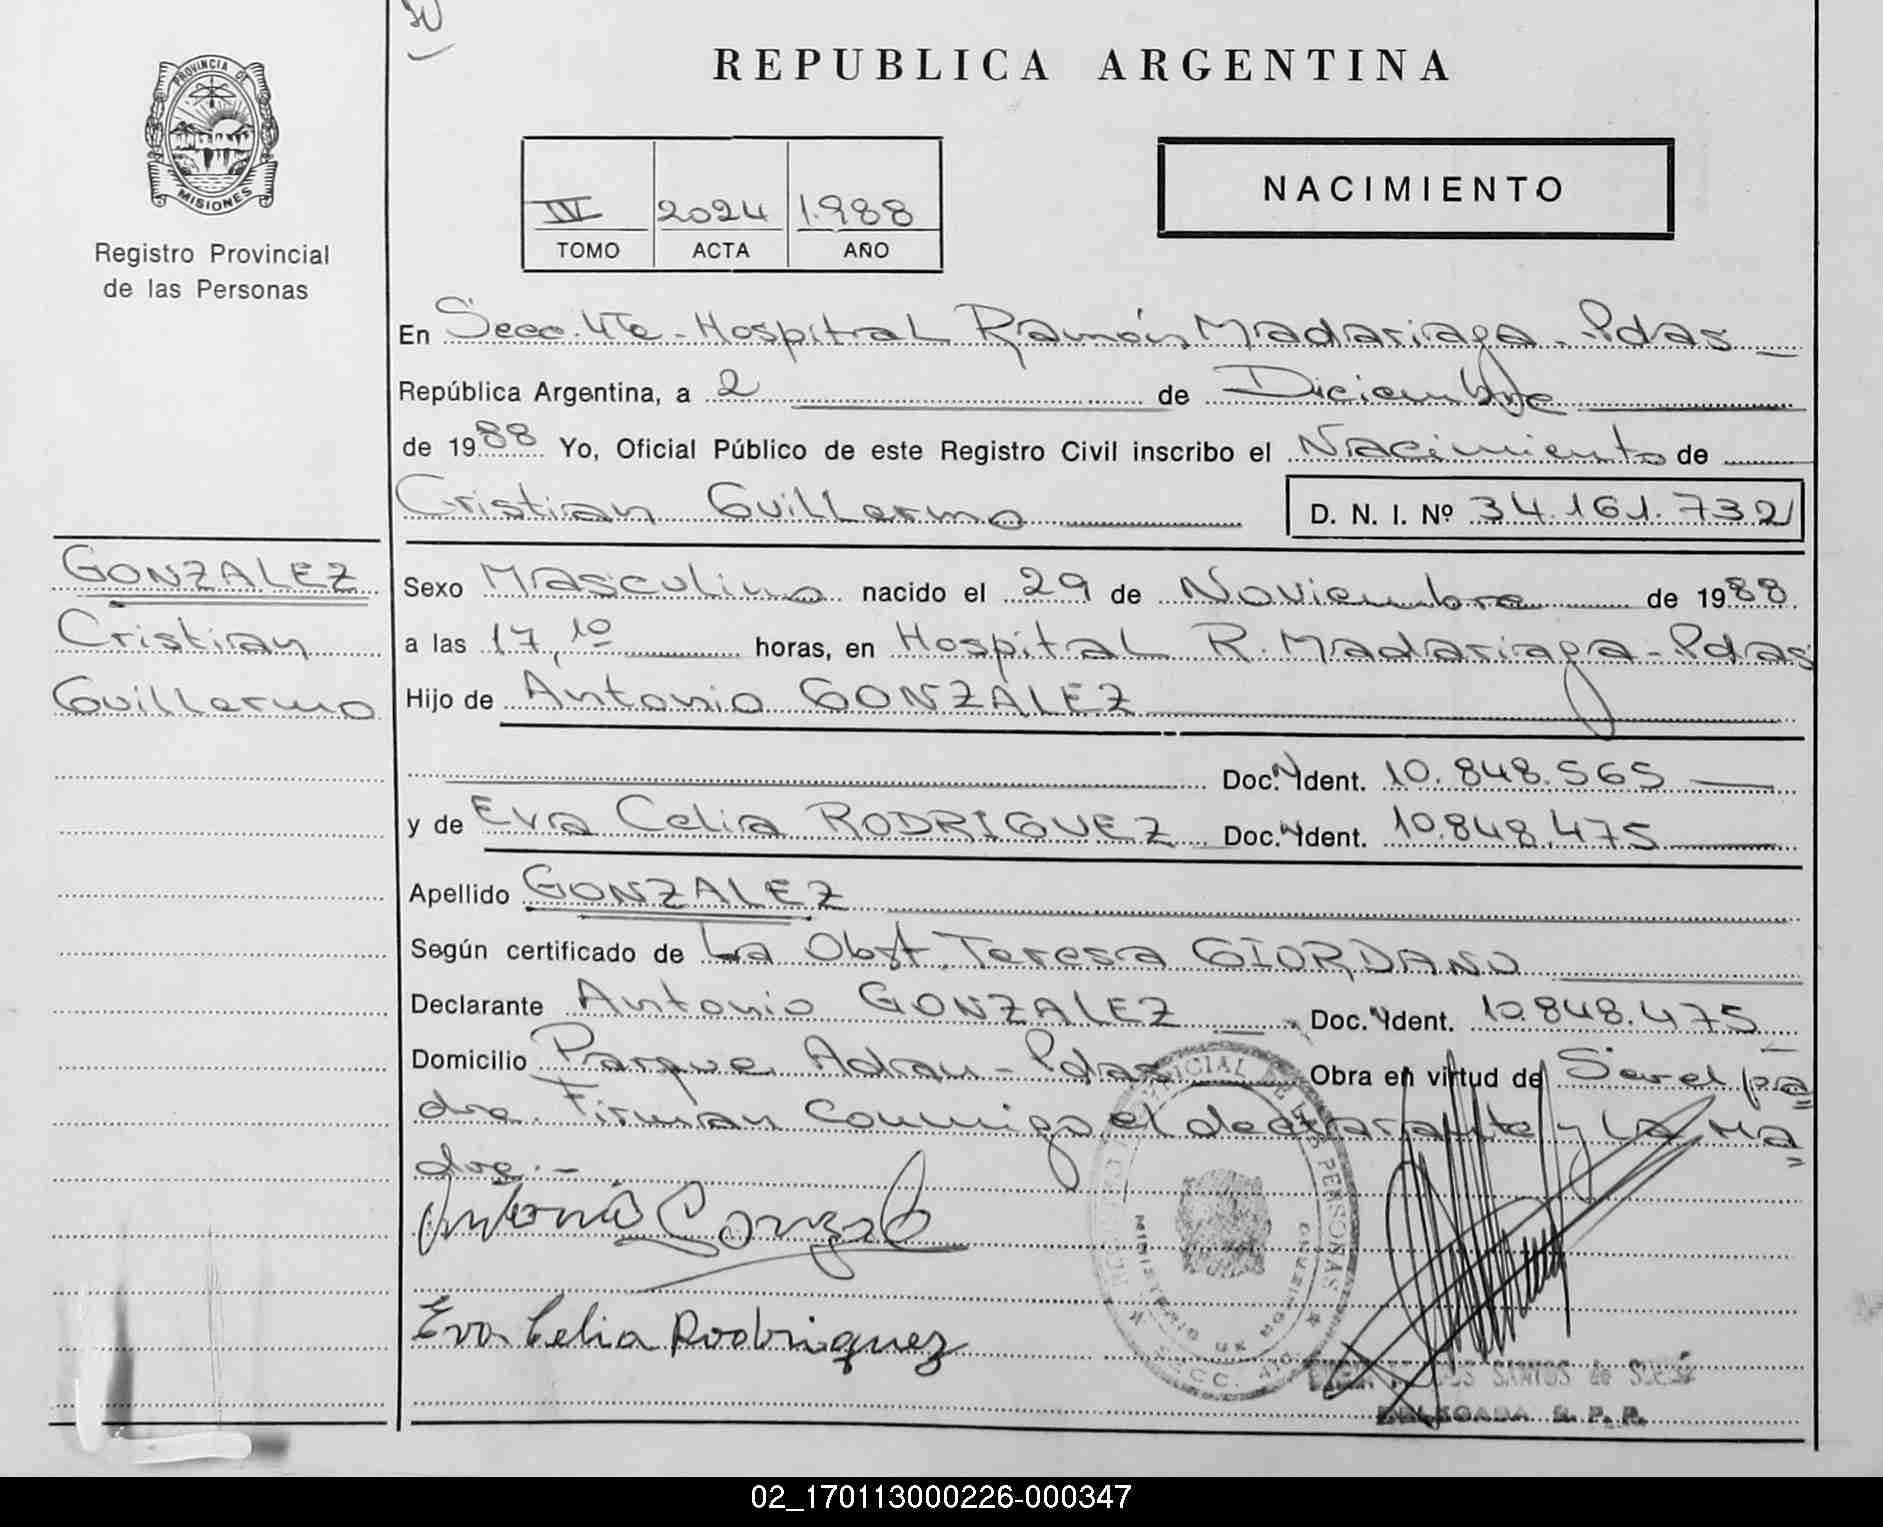 REPUBLICA ARGENTINA
PROVINCIA DE
MISIONES
Registro Provincial
de las Personas
NACIMIENTO
IV 2024 1.988
TOMO ACTA AÑO
En Secc. 4Ta - Hospital Ramón Madariaga - Pdas
República Argentina, a 2 de Diciembre
de 1988 Yo, Oficial Público de este Registro Civil inscribo el Nacimiento de
Cristian Guillermo D. N. I. Nº 34.161.732
GONZALEZ
Cristian
Guillermo
Sexo Masculino nacido el 29 de Noviembre de 1988
a las 17,10 horas, en Hospital R. Madariaga - Pdas
Hijo de Antonio GONZALEZ
Doc. Ident. 10.848.565
y de Eva Celia RODRIGUEZ Doc. Ident. 10.848.475
Apellido GONZALEZ
Según certificado de La Obst. Teresa GIORDANO
Declarante Antonio GONZALEZ Doc. Ident. 10.848.475
Domicilio Parque Adam - Pdas Obra en virtud de Ser el pa=
dre. Firman conmigo el declarante y La ma=
dre.-
Antonio Gonzalez
Eva Celia Rodriguez
DE LAS PERSONAS
SANTOS de
DELEGADA R. P. P.
02_170113000226-000347